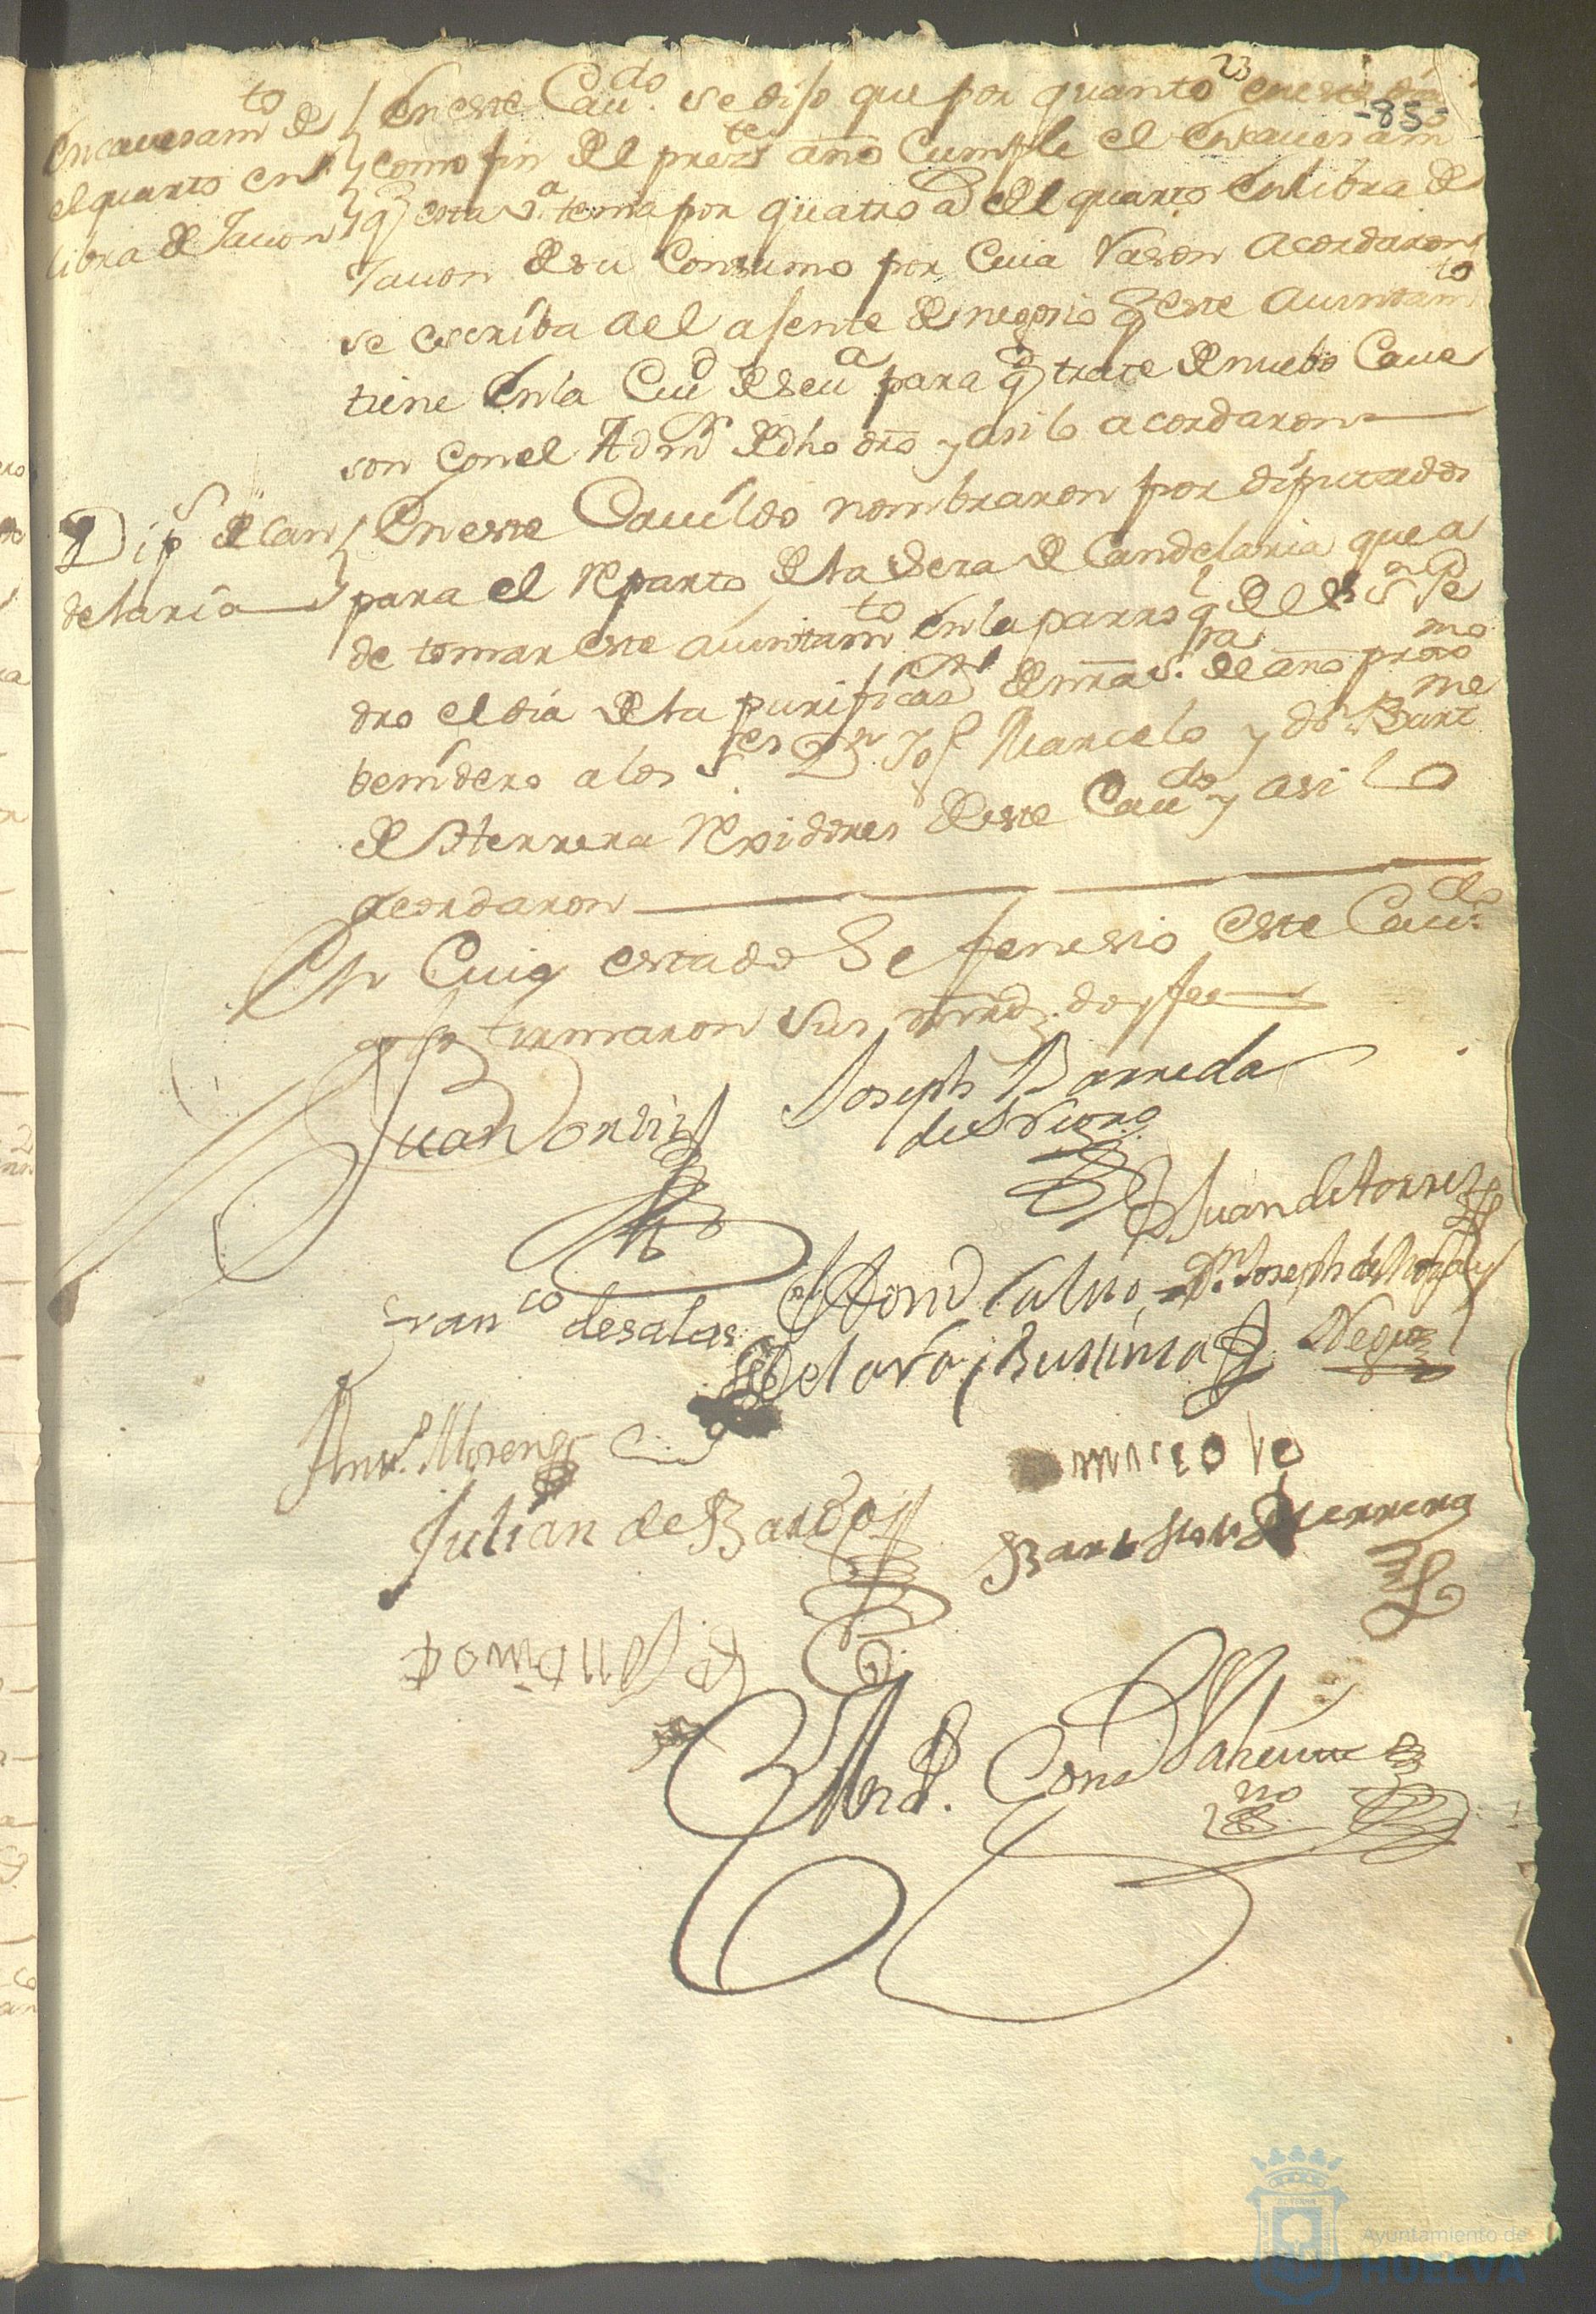 23
-85-
Encavesamto de
el quarto en
libra de Javon
En este Cavdo. se dijo que por quanto en este dia
como fin del preste año Cumple el encavesamto
q esta va. tenia por quatro as del quarto en libra de
Javon de su Consumo por Cuia rason acordaron
se escriba a el ajente de negosio q este auintamto
tiene en la Ciud de seua para q trate de nuebo Cave
son con el Admr de dho dro y asi lo acordaron
Dips de Can
delaria
En este Cavildo nombraron por diputados
para el reparto de la sera de Candelaria que a
de tomar este auintamto en la parroql de el Sr Sn Pe
dro el dia de la purificasn de nra sra. de año procsimo
benidero a los Sres Dn Josf Marcelo y dn Bartme
de Herrera rexidores de este Cavdo y asi lo
acordaron
En Cuio estado Se fenesio este Cavdo.
y lo firmaron sus mrds. doy fee
Juan Gordis
Joseph Barreda
de
Juan de torres
Franco de salas
Antto Calvo
Dn. Joseph de
de Lara y Bustinsa
Anto. Moreno
marcelo
Julian de
Bartolome de Herrera
Andr.
no
Ayuntamiento de
HUELVA